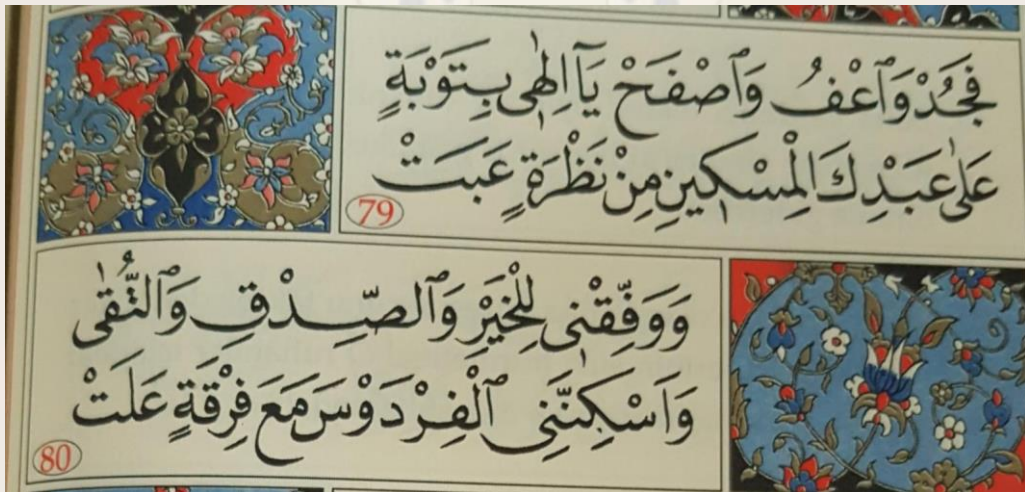 فَجُدْ وَٱعْفُ وَٱصْفَحْ يَآ اِلٰهٖى بِتَوْبَةٍ
عَلٰى عَبْدِكَ الْمِسْكٖينِ مِنْ نَظْرَةٍ عَبَتْ
79
وَوَفِّقْنٖى لِلْخَيْرِ وَٱلصِّدْقِ وَٱلتُّقٰى
وَاَسْكِنَنّٖى ٱلْفِرْدَوْسَ مَعَ فِرْقَةٍ عَلَتْ
80